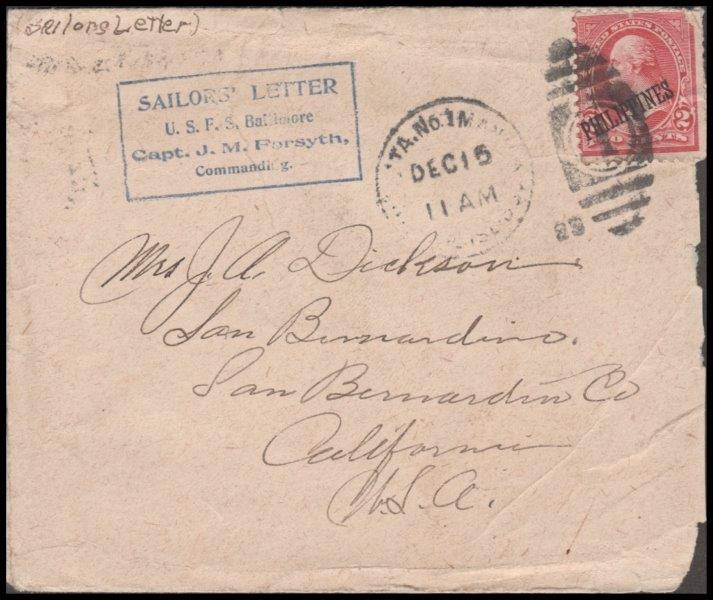 (Sailors Letter)
SAILORS' LETTER
U. S. F. S. Baltimore
Capt. J. M. Forsyth,
Commanding.
STA. No. 1 MAN
DEC 15
11 AM
ISL
99
UNITED STATES POSTAGE
PHILIPPINES
2
Mrs J. A. Dickson
San Bernardino.
San Bernardin Co
California
U.S.A.